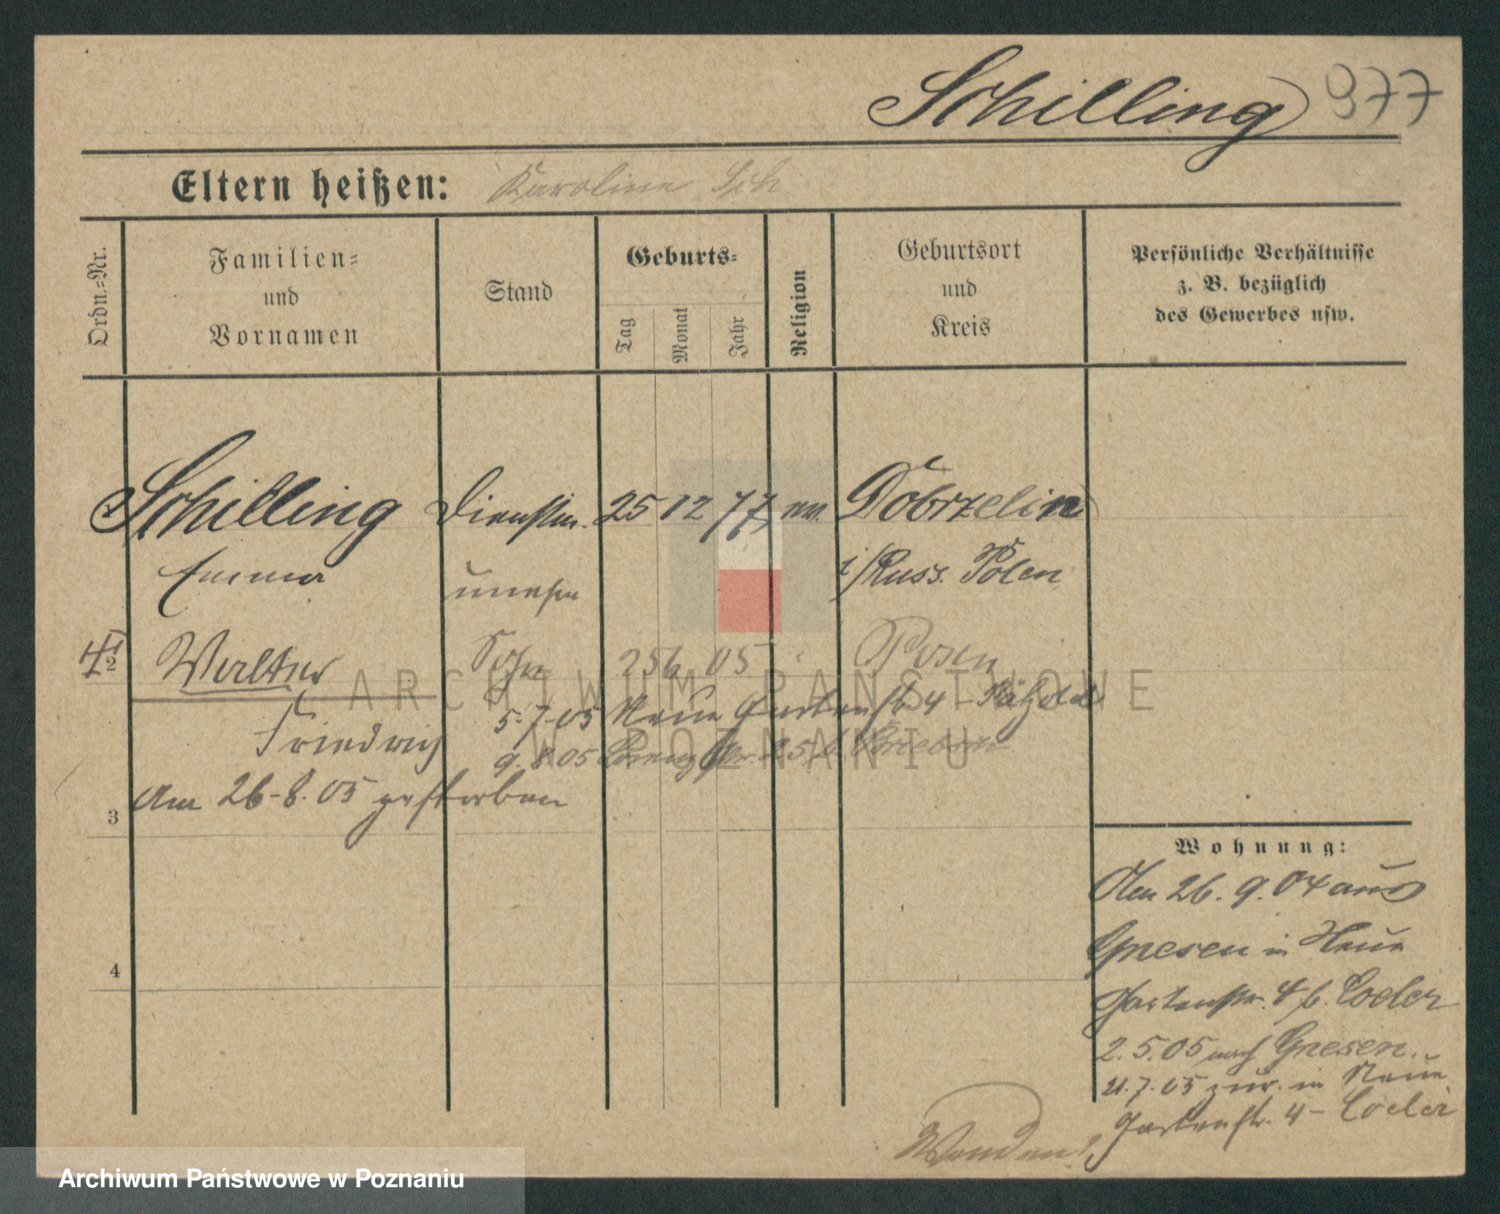 Schilling 977
Eltern heißen: Karoline Sch
Ordn.-Nr.
Familien-
und
Vornamen
Stand
Geburts-
Tag
Monat
Jahr
Religion
Geburtsort
und
Kreis
Persönliche Verhältnisse
z. B. bezüglich
des Gewerbes usw.
Schilling Dienstm. 25 12 77 Dobrzelin
Emma unehe i/Russ. Polen
2 Walter Sohn 25 6 05 Posen
5.7.05 Neue Gartenstr 4
Friedrich
9.8.05
Am 26.8.05 gestorben
3
4
Wohnung:
Am 26.9.04 aus
Gnesen in Neue
Gartenstr. 4 b. Loeler
2.5.05 nach Gnesen.
11.7.05 zur. in Neue
Gartenstr. 4 - Loeler
Wenden!
ARCHIWUM PAŃSTWOWE
W POZNANIU
Archiwum Państwowe w Poznaniu